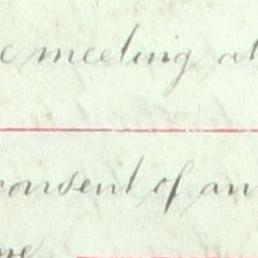 meeting at
consent of an